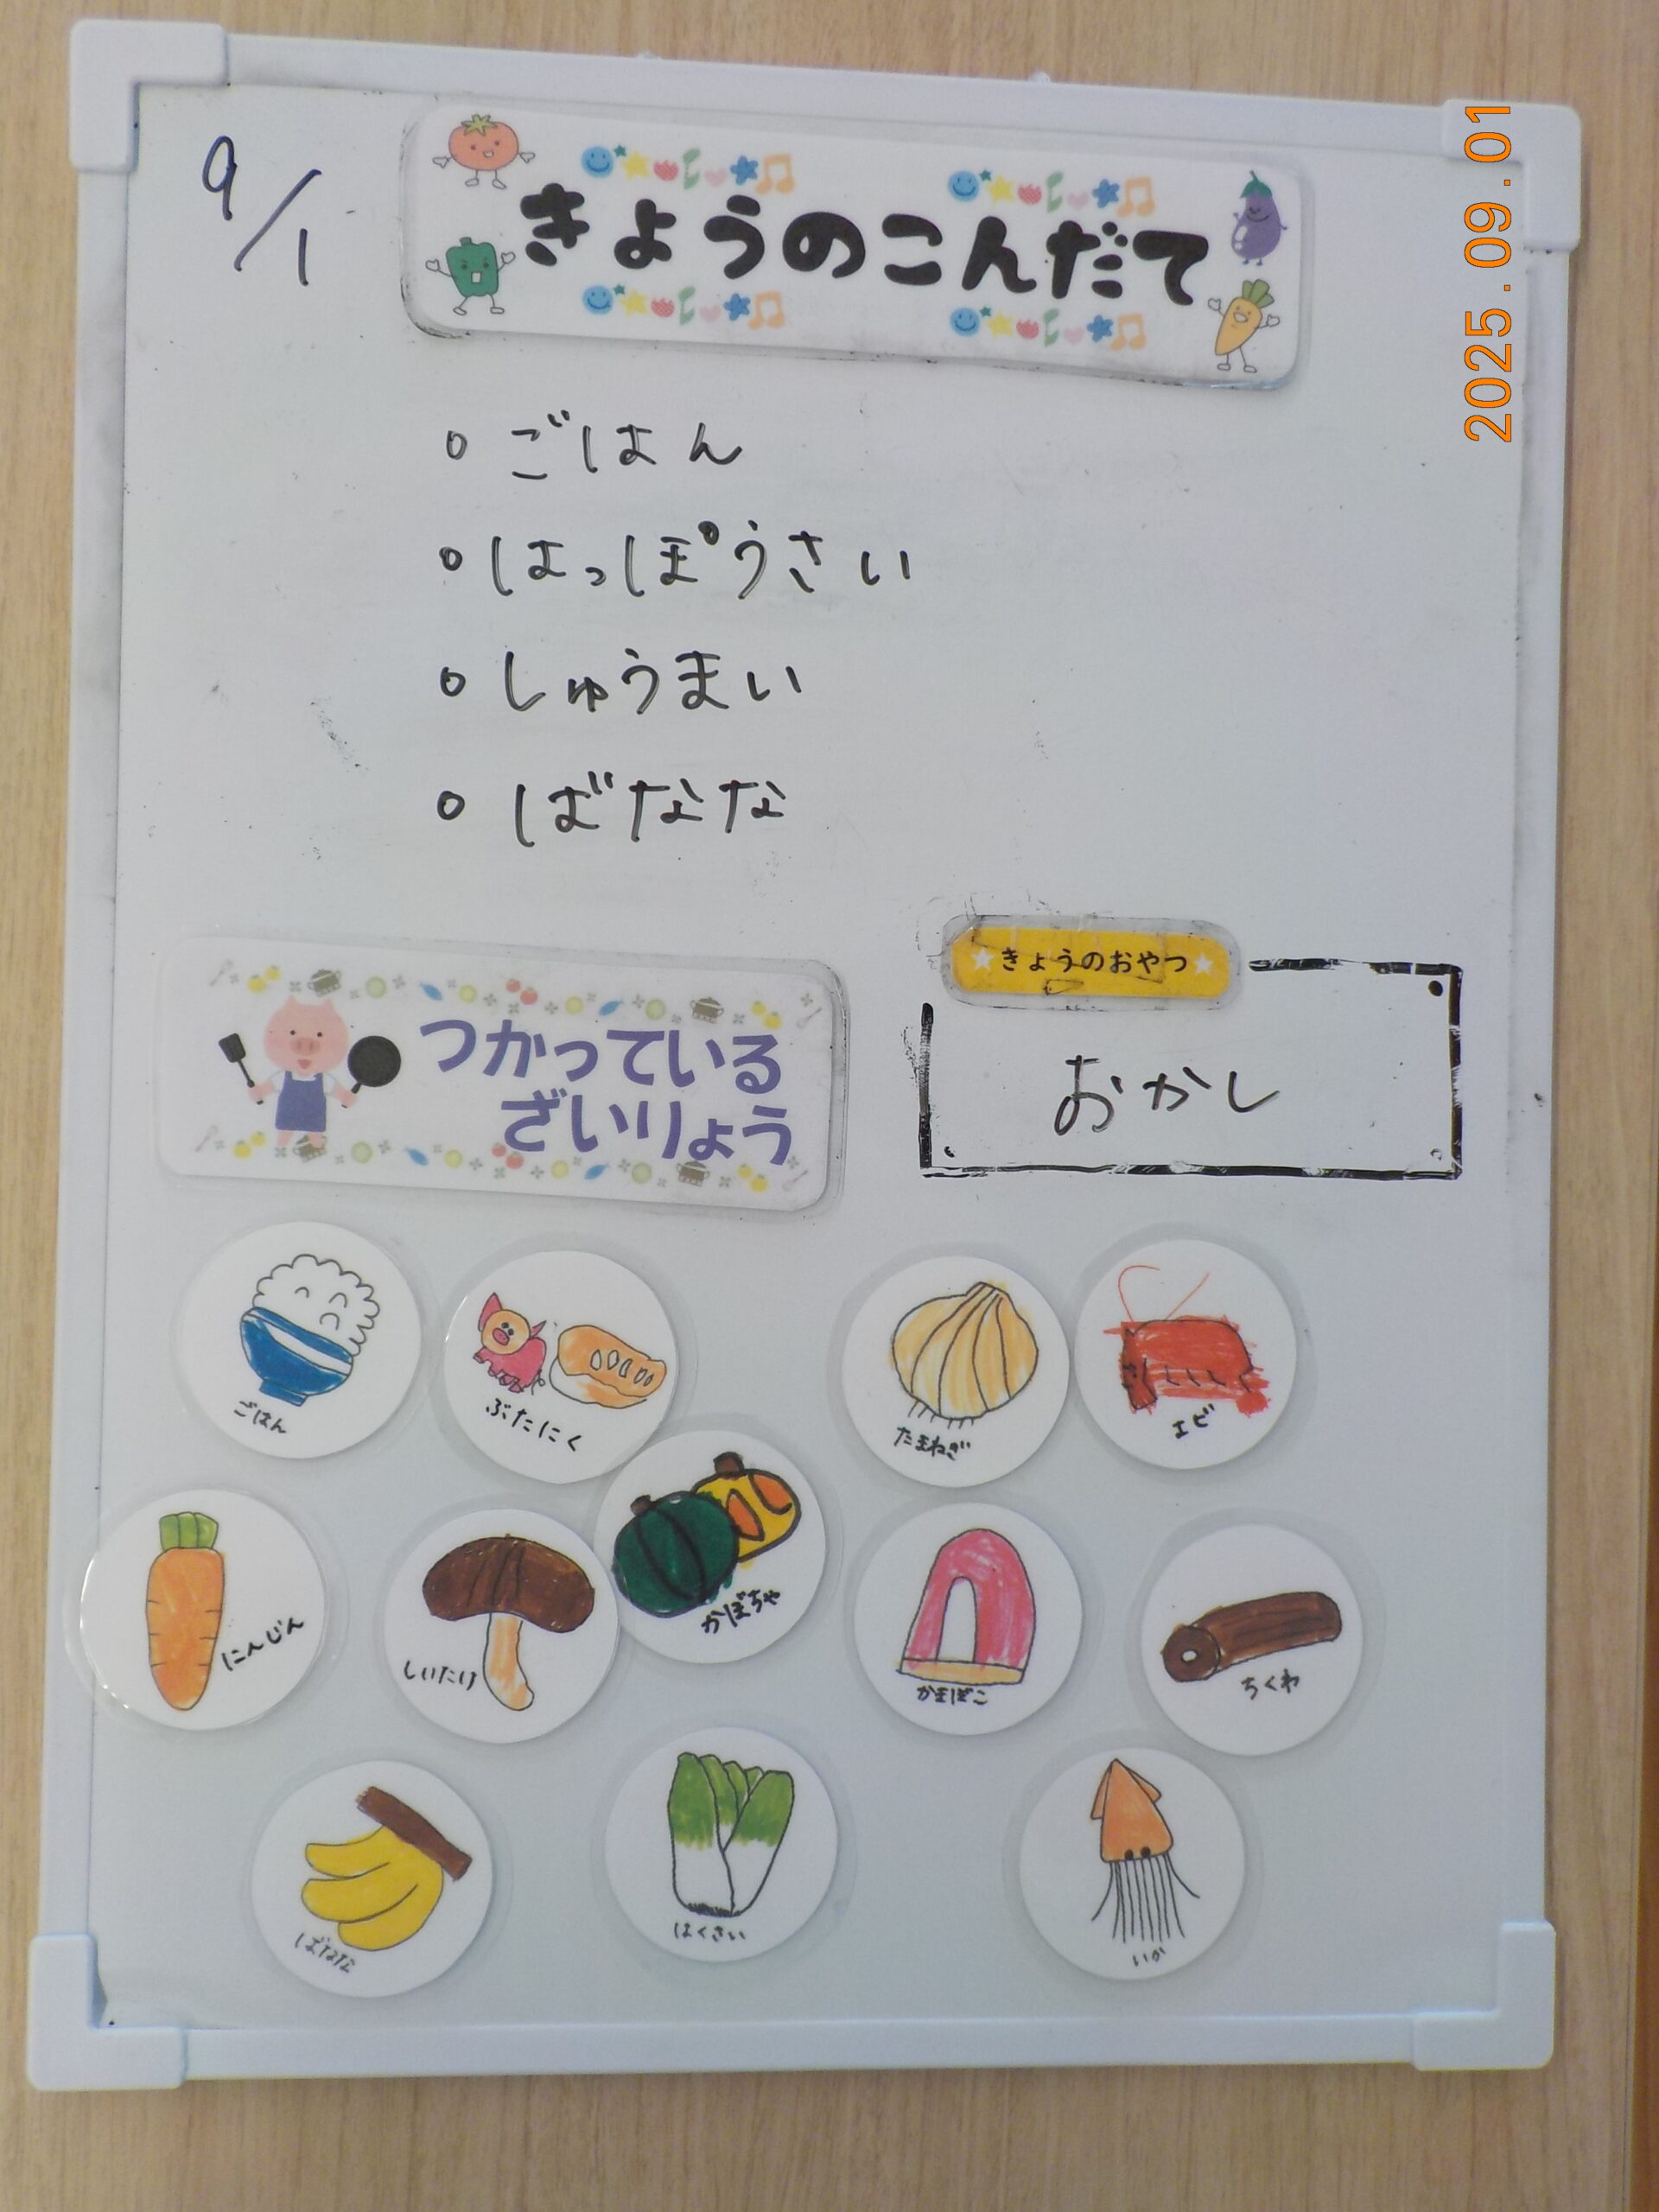 9/1
きょうのこんだて
2025.09.01
○ ごはん
○ はっぽうさい
○ しゅうまい
○ ばなな
きょうのおやつ
おかし
つかっている
ざいりょう
ごはん
ぶたにく
たまねぎ
エビ
にんじん
しいたけ
かぼちゃ
かまぼこ
ちくわ
ばなな
はくさい
いか